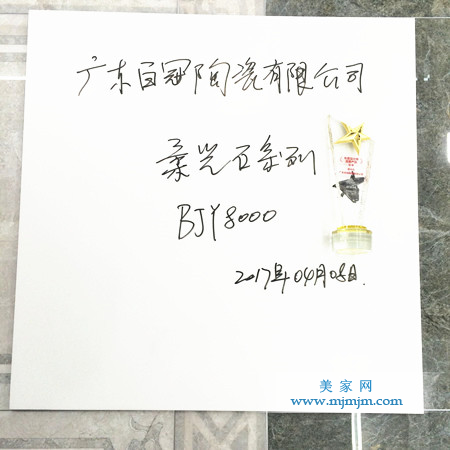 广东百冠陶瓷有限公司
柔光石系列
BJY8000
2017年04月08日.
美家网
www.mjmjm.com